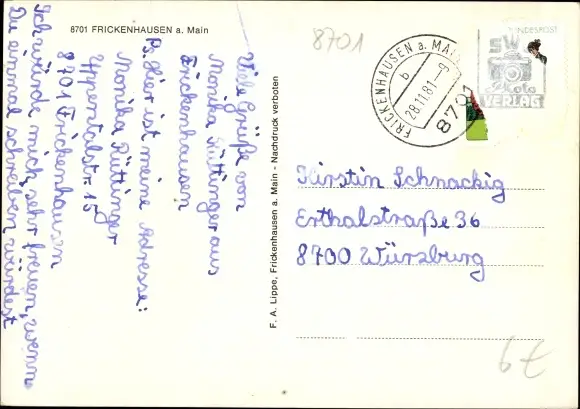 8701 FRICKENHAUSEN a. Main
8701
Viele Grüße von
Monika Rüttinger aus
Frickenhausen
Ps. Hier ist meine Adresse:
Monika Rüttinger
8701 Frickenhausen
Ich würde mich sehr freuen, wenn
Du einmal schreiben würdest
F. A. Lippe, Frickenhausen a. Main - Nachdruck verboten
FRICKENHAUSEN a. MAIN
b
28.11.81
8701
BUNDESPOST
SW
VERLAG
Kirstin Schnackig
Erthalstraße 36
8700 Würzburg
67